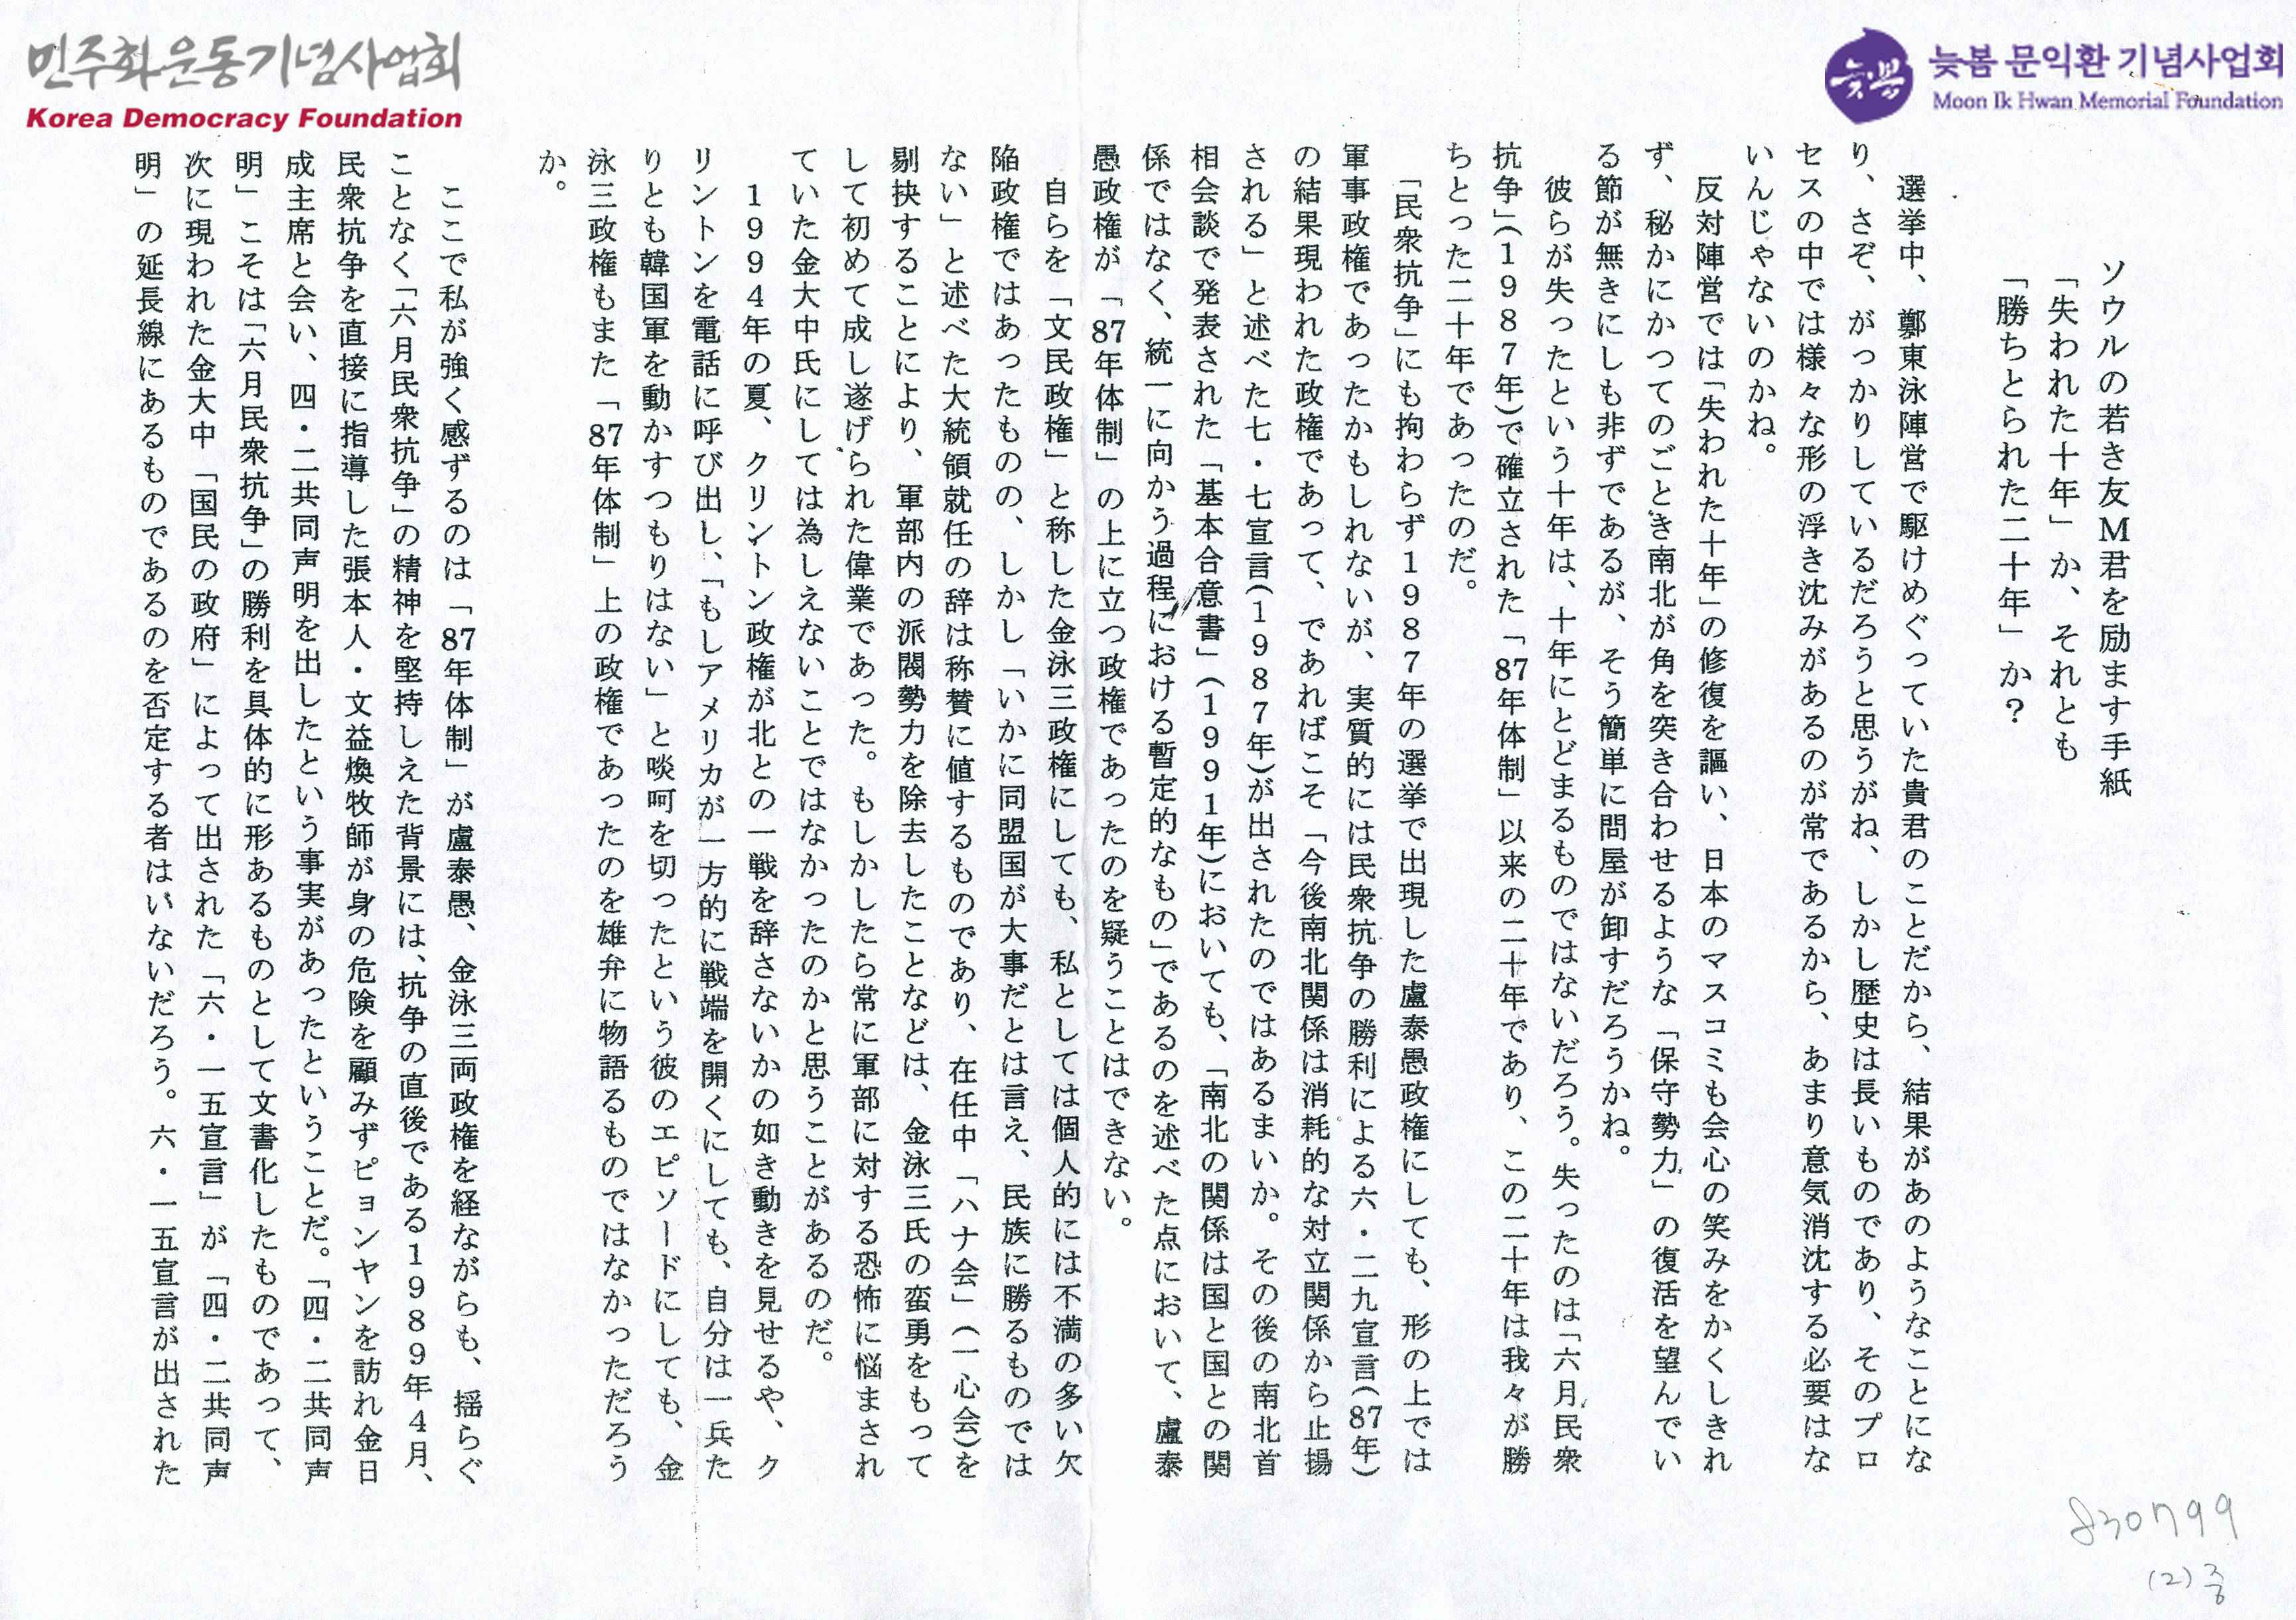 민주화운동기념사업회
Korea Democracy Foundation
늦봄
늦봄 문익환 기념사업회
Moon Ik Hwan Memorial Foundation
ソウルの若き友M君を励ます手紙
「失われた十年」か、それとも
「勝ちとられた二十年」か？
選挙中、鄭東泳陣営で駆けめぐっていた貴君のことだから、結果があのようなことにな
り、さぞ、がっかりしているだろうと思うがね、しかし歴史は長いものであり、そのプロ
セスの中では様々な形の浮き沈みがあるのが常であるから、あまり意気消沈する必要はな
いんじゃないのかね。
反対陣営では「失われた十年」の修復を謳い、日本のマスコミも会心の笑みをかくしきれ
ず、秘かにかつてのごとき南北が角を突き合わせるような「保守勢力」の復活を望んでい
る節が無きにしも非ずであるが、そう簡単に問屋が卸すだろうかね。
彼らが失ったという十年は、十年にとどまるものではないだろう。失ったのは「六月民衆
抗争」（１９８７年）で確立された「87年体制」以来の二十年であり、この二十年は我々が勝
ちとった二十年であったのだ。
「民衆抗争」にも拘わらず１９８７年の選挙で出現した盧泰愚政権にしても、形の上では
軍事政権であったかもしれないが、実質的には民衆抗争の勝利による六・二九宣言（87年）
の結果現われた政権であって、であればこそ「今後南北関係は消耗的な対立関係から止揚
される」と述べた七・七宣言（１９８７年）が出されたのではあるまいか。その後の南北首
相会談で発表された「基本合意書」（１９９１年）においても、「南北の関係は国と国との関
係ではなく、統一に向かう過程における暫定的なもの」であるのを述べた点において、盧泰
愚政権が「87年体制」の上に立つ政権であったのを疑うことはできない。
自らを「文民政権」と称した金泳三政権にしても、私としては個人的には不満の多い欠
陥政権ではあったものの、しかし「いかに同盟国が大事だとは言え、民族に勝るものでは
ない」と述べた大統領就任の辞は称賛に値するものであり、在任中「ハナ会」（一心会）を
剔抉することにより、軍部内の派閥勢力を除去したことなどは、金泳三氏の蛮勇をもって
して初めて成し遂げられた偉業であった。もしかしたら常に軍部に対する恐怖に悩まされ
ていた金大中氏にしては為しえないことではなかったのかと思うことがあるのだ。
１９９４年の夏、クリントン政権が北との一戦を辞さないかの如き動きを見せるや、ク
リントンを電話に呼び出し、「もしアメリカが一方的に戦端を開くにしても、自分は一兵た
りとも韓国軍を動かすつもりはない」と啖呵を切ったという彼のエピソードにしても、金
泳三政権もまた「87年体制」上の政権であったのを雄弁に物語るものではなかっただろう
か。
ここで私が強く感ずるのは「87年体制」が盧泰愚、金泳三両政権を経ながらも、揺らぐ
ことなく「六月民衆抗争」の精神を堅持しえた背景には、抗争の直後である１９８９年４月、
民衆抗争を直接に指導した張本人・文益煥牧師が身の危険を顧みずピョンヤンを訪れ金日
成主席と会い、四・二共同声明を出したという事実があったということだ。「四・二共同声
明」こそは「六月民衆抗争」の勝利を具体的に形あるものとして文書化したものであって、
次に現われた金大中「国民の政府」によって出された「六・一五宣言」が「四・二共同声
明」の延長線にあるものであるのを否定する者はいないだろう。六・一五宣言が出された
830799
(2)중